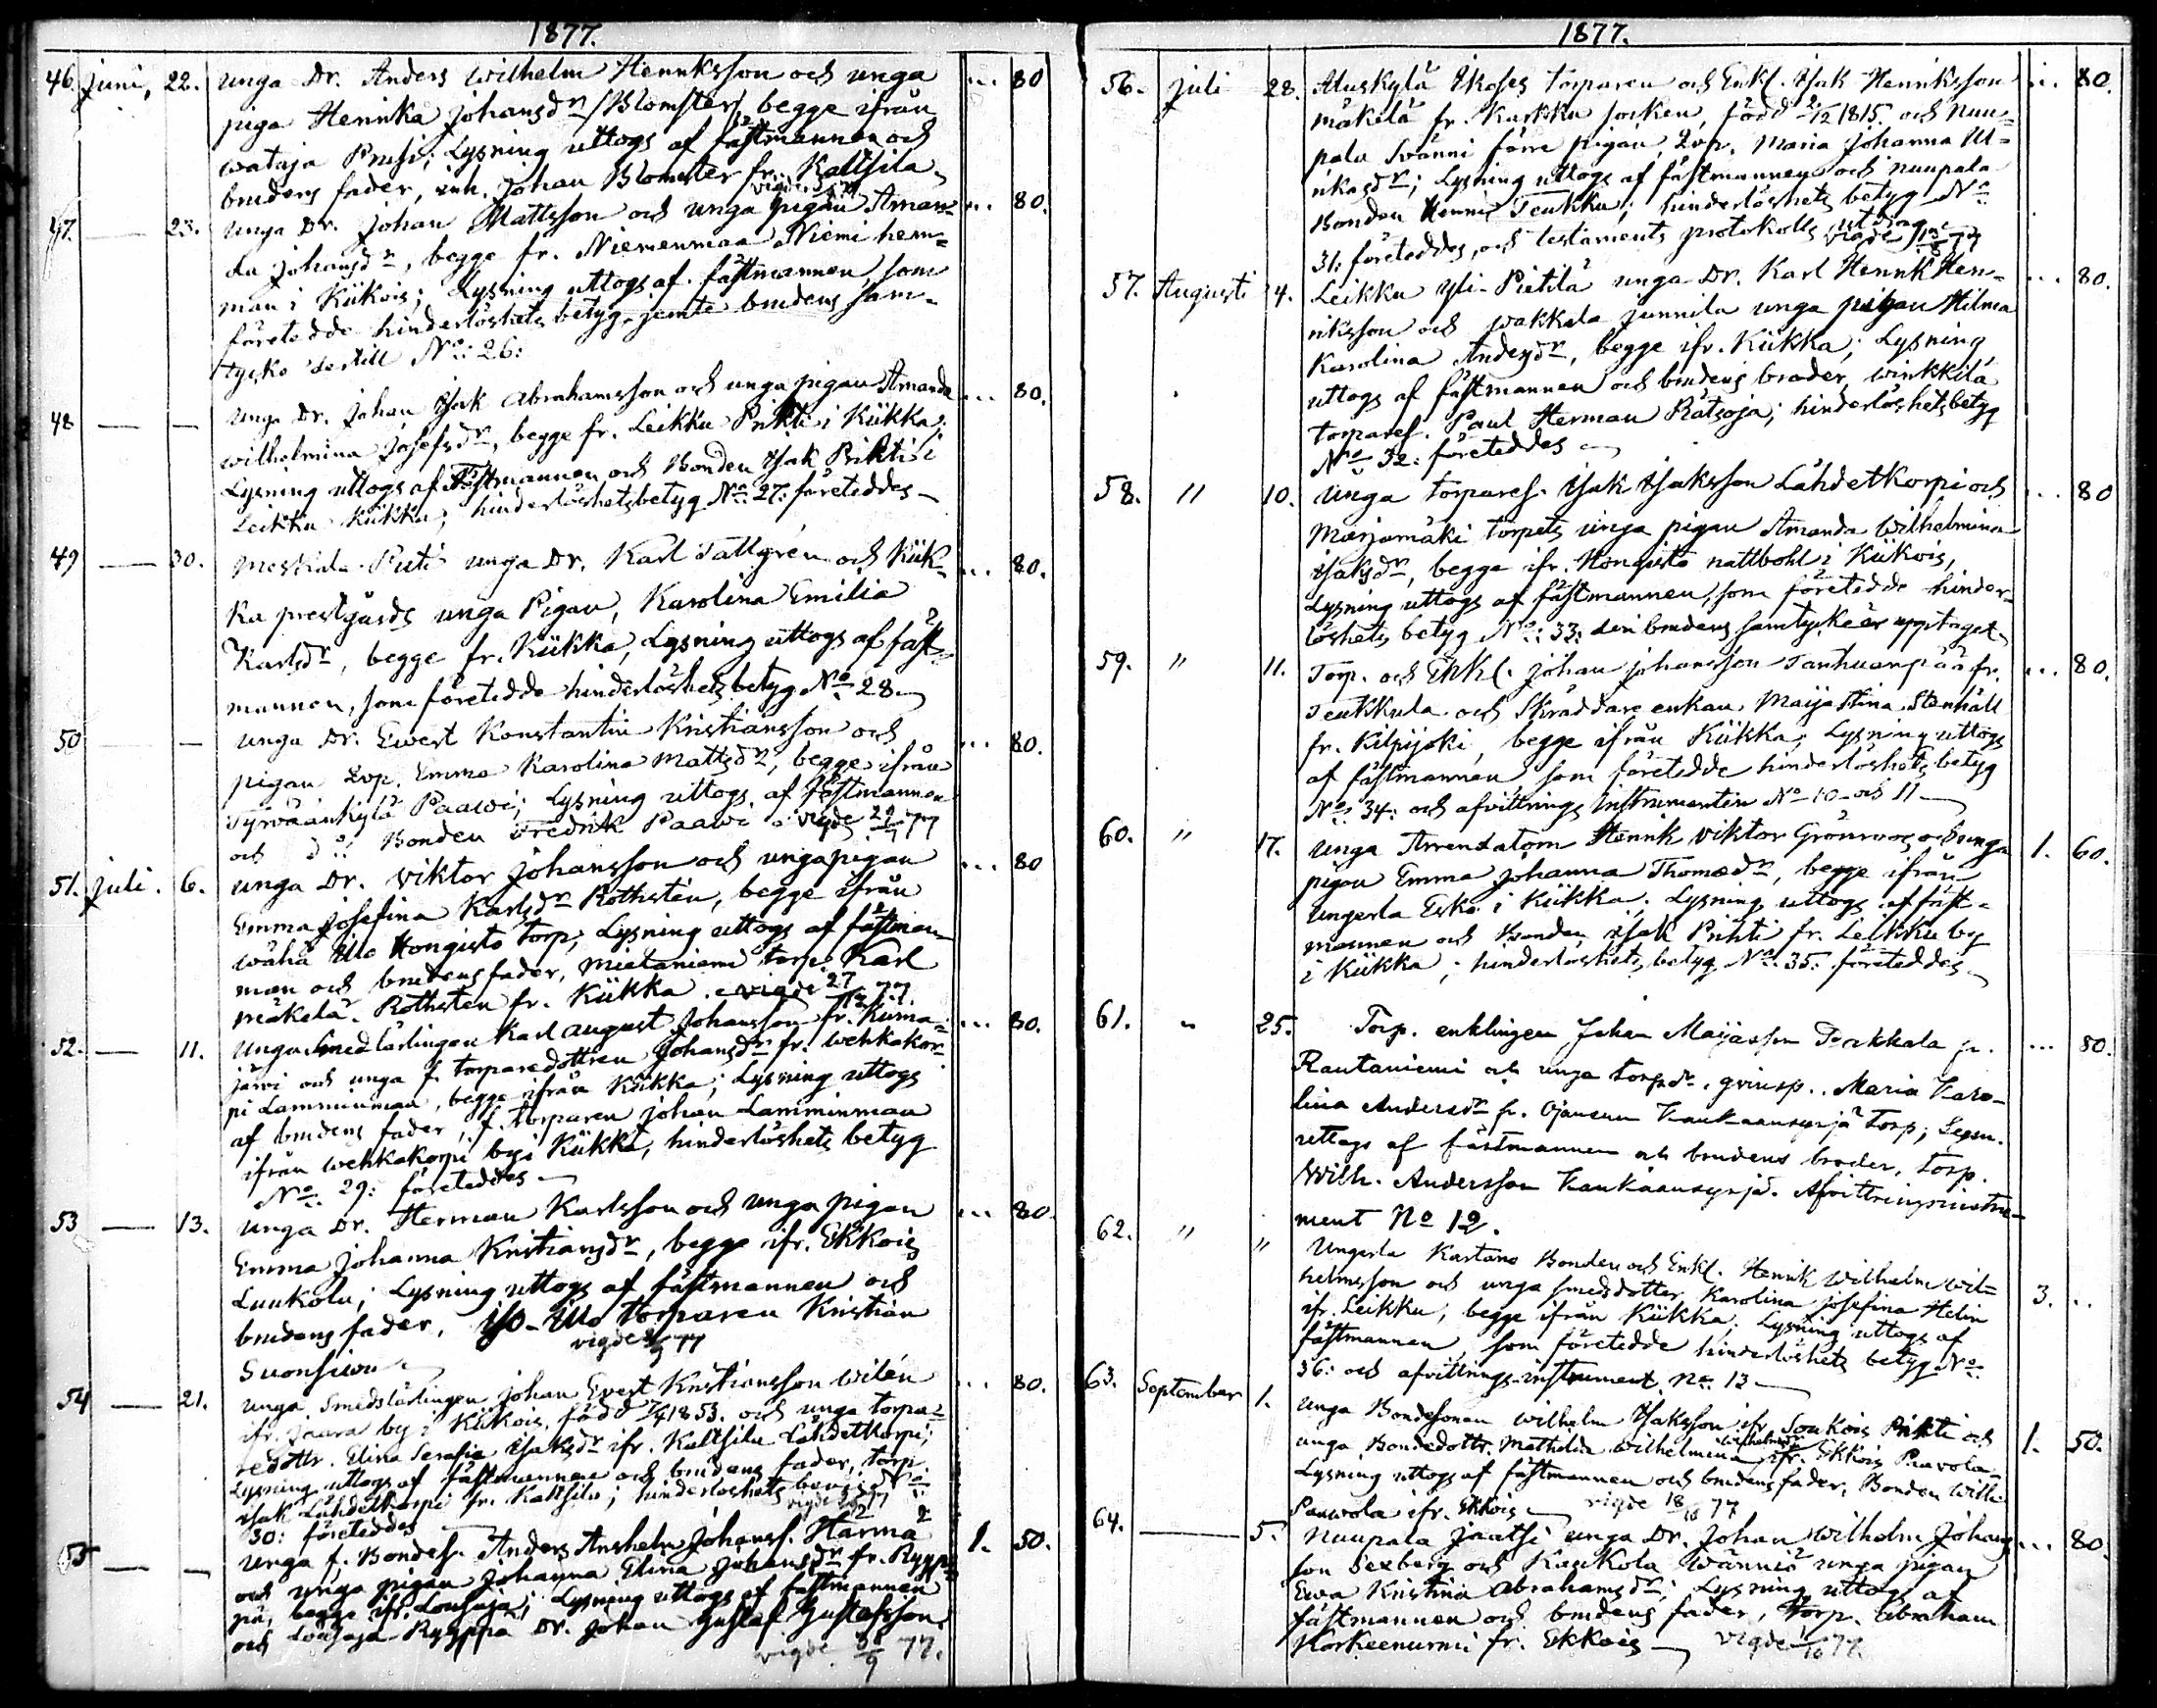 1877.
46. Juni, 22. unga Dr. Anders Wilhelm Henriksson och unga ... 80
piga Henrika Johansdr /Blomster/ begge ifrån
wataja Prusi; Lysning uttogs af fästmannen och
brudens fader, inh. Johan Blomster fr. Kaltsila
47. — 23. unga Dr. Johan Mattsson och unga pigan Aman- ... 80.
da Johansdr, begge fr. Niemenmaa Niemi hem-
man i Kiikois; Lysning uttogs af fästmannen, som
företedde hinderlöshets betyg jemte brudens sam-
tycke dertill No: 26:
48 — — unga Dr. Johan Isak Abrahamsson och unga pigan Amanda ... 80.
wilhelmina Josefsdr, begge fr. Leikku Prihti i Kiikka;
Lysning uttogs af Fästmannen och Bonden Isak Prihti i
Leikku Kiikka; hinderlöshetsbetyg No: 27: företeddes —
49 — 30. Meskala Puti unga Dr. Karl Tallgrén och Kiik- ... 80.
ka prestgårds unga Pigan, Karolina Emilia
Karlsdr, begge fr. Kiikka, Lysning uttogs af fäst-
mannen, som företedde hinderlöshets betyg No 28 —
50 — — unga Dr. Ewert Konstantin Kristiansson och ... 80.
pigan Emma Karolina Mattsdr, begge ifrån
Tyrväänkylä Paawi; Lysning uttogs af fästmannen
och do: Bonden Fredrik Paawi vigde 29/7 77
51. Juli. 6. unga Dr. Viktor Johansson och unga pigan ... 80
Emma Josefina Karlsdr Rothstén, begge ifrån
wähä Ulo Hongisto torp; Lysning uttogs af fästman-
nen och brudens fader, Mietaniemi torp. Karl
Mäkelä Rothstén fr. Kiikka. vigde 27/12 77.
52. — 11. unga Smedlärlingen Karl August Johansson fr. Kiima- ... 80.
järvi och unga f. torparedottren Johansdr fr. wehkakor-
pi Lamminmaa, begge ifrån Kiikka; Lysning uttogs
af brudens fader, f. torparen Johan Lamminmaa
ifrån wehkakorpi by i Kiikka, hinderlöshets betyg
No: 29: företeddes —
53 — 13. unga Dr. Herman Karlsson och unga pigan ... 80.
Emma Johanna Kristiansdr, begge ifr. Ekkois
Luukola; Lysning uttogs af fästmannen och
brudens fader, Iso-Ulo torparen Kristian
Suonsiwu vigde 77
54 — 21. unga Smedslärlingen Johan Evert Kristiansson Wilén ... 80.
ifr. Jaara by i Kiikois, född 1853. och unga torpa-
redottr. Elina Serafia Isaksdr ifr. Kaltsila Lähdetkorpi;
Lysning uttogs af fästmannen och brudens fader, torp.
Isak Lähdetkorpi fr. Kaltsila; hinderlöshets bevis No
30: företeddes
55 — — unga f. Bondes. Anders Anshelm Johanss. Härmä 1. 50.
och unga pigan Johanna Elina Johansdr fr. Ryyp-
pä, begge ifr. Lousaja; Lysning uttogs af fästmannen
och Lousaja Ryyppä Dr. Johan Gustaf Gustafsson
vigde 30/9 77.
1877.
56. Juli 28. Muskylä Ikoses torparen och Enkl. Isak Henriksson ... 80.
Mäkelä fr. Karkku socken, född 2/12 1815. och Nuu-
pala Svänni förre pigan, Maria Johanna Ul-
rikasdr; Lysning uttogs af fästmannen och Nuupala
Bonden Henrik Teukku; hinderlöshets betyg No
31: företeddes, och testaments protokolls vigde 13/8 77
57. Augusti 4. Leikku Yli-Pietilä unga Dr. Karl Henrik Hen- ... 80.
riksson och wakkala Junnila unga pigan Hilma
Karolina Andersdr, begge ifr. Kiikka; Lysning
uttogs af fästmannen och brudens broder, winkkilä
torpares. Paul Herman Rätsoja; hinderlöshetsbetyg
No 32: företeddes
58. " 10. unga torpares. Isak Isaksson Lähdetkorpi och ... 80
Marjamäki torpets unga pigan Amanda Wilhelmina
Isaksdr, begge ifr. Hongisto nattbohl i Kiikois,
Lysning uttogs af fästmannen, som företedde hinder-
löshets betyg No: 33: deri brudens samtycke är upptaget
59. " 11. Torp. och Enkl. Johan Johansson Tanhuanpää fr. ... 80.
Teukkula och Skräddare enkan Maija Stina Stenhäll
fr. Kilpijoki, begge ifrån Kiikka; Lysning uttogs
af fästmannen, som företedde hinderlöshets betyg
No: 34: och afvittrings Instrumenten No 10 och 11 —
60. " 17. unga Arrendatorn Henrik Viktor Grönroos och unga 1. 60.
pigan Emma Johanna Thomædr, begge ifrån
ungerla Esko i Kiikka; Lysning uttogs af fäst-
mannen och Bonden Isak Prihti fr. Leikku by
i Kiikka; hinderlöshets betyg No: 35: företeddes
61. " 25. Torp. enklingen Johan Maijasson Pakkala fr. ... 80.
Rautaniemi och unga torpdr. qvinsp. Maria Karo-
lina Andersdr fr. Ojansuu Kaukaansyrjä Torp; Lysn.
uttogs af fästmannen och brudens broder, Torp.
Wilh. Andersson Kaukaansyrjä. Afvittringsinstru-
ment No 12.
62. " " Ungerla Kartano Bonden och Enkl. Henrik Wilhelm Wil- 3. ..
helmsson och unga smedsdotter Karolina Josefina Helin
ifr. Leikku, begge ifrån Kiikka; Lysning uttogs af
fästmannen, som företedde hinderlöshets betyg No:
36: och afvittrings instrument No: 13 —
63. September 1. unga Bondesonen Wilhelm Isaksson ifr. Soukois Prihti och 1. 50.
unga Bondedottr. Mathilda Wilhelmina Wilhelmsdr ifr. Ekkois Paavola
Lysning uttogs af fästmannen och brudens fader, Bonden Wilh.
Paavola ifr. Ekkois — vigde 18/10 77
64. — 5. Nuupala Jaatsi unga Dr. Johan Wilhelm Johans- ... 80.
son Sexberg och Kaukola Wännis unga pigan
Ewa Kristina Abrahamsdr; Lysning uttogs af
fästmannen och brudens fader, Torp. Abraham
Korkeenurmi fr. Ekkois — vigde 1/10 77.